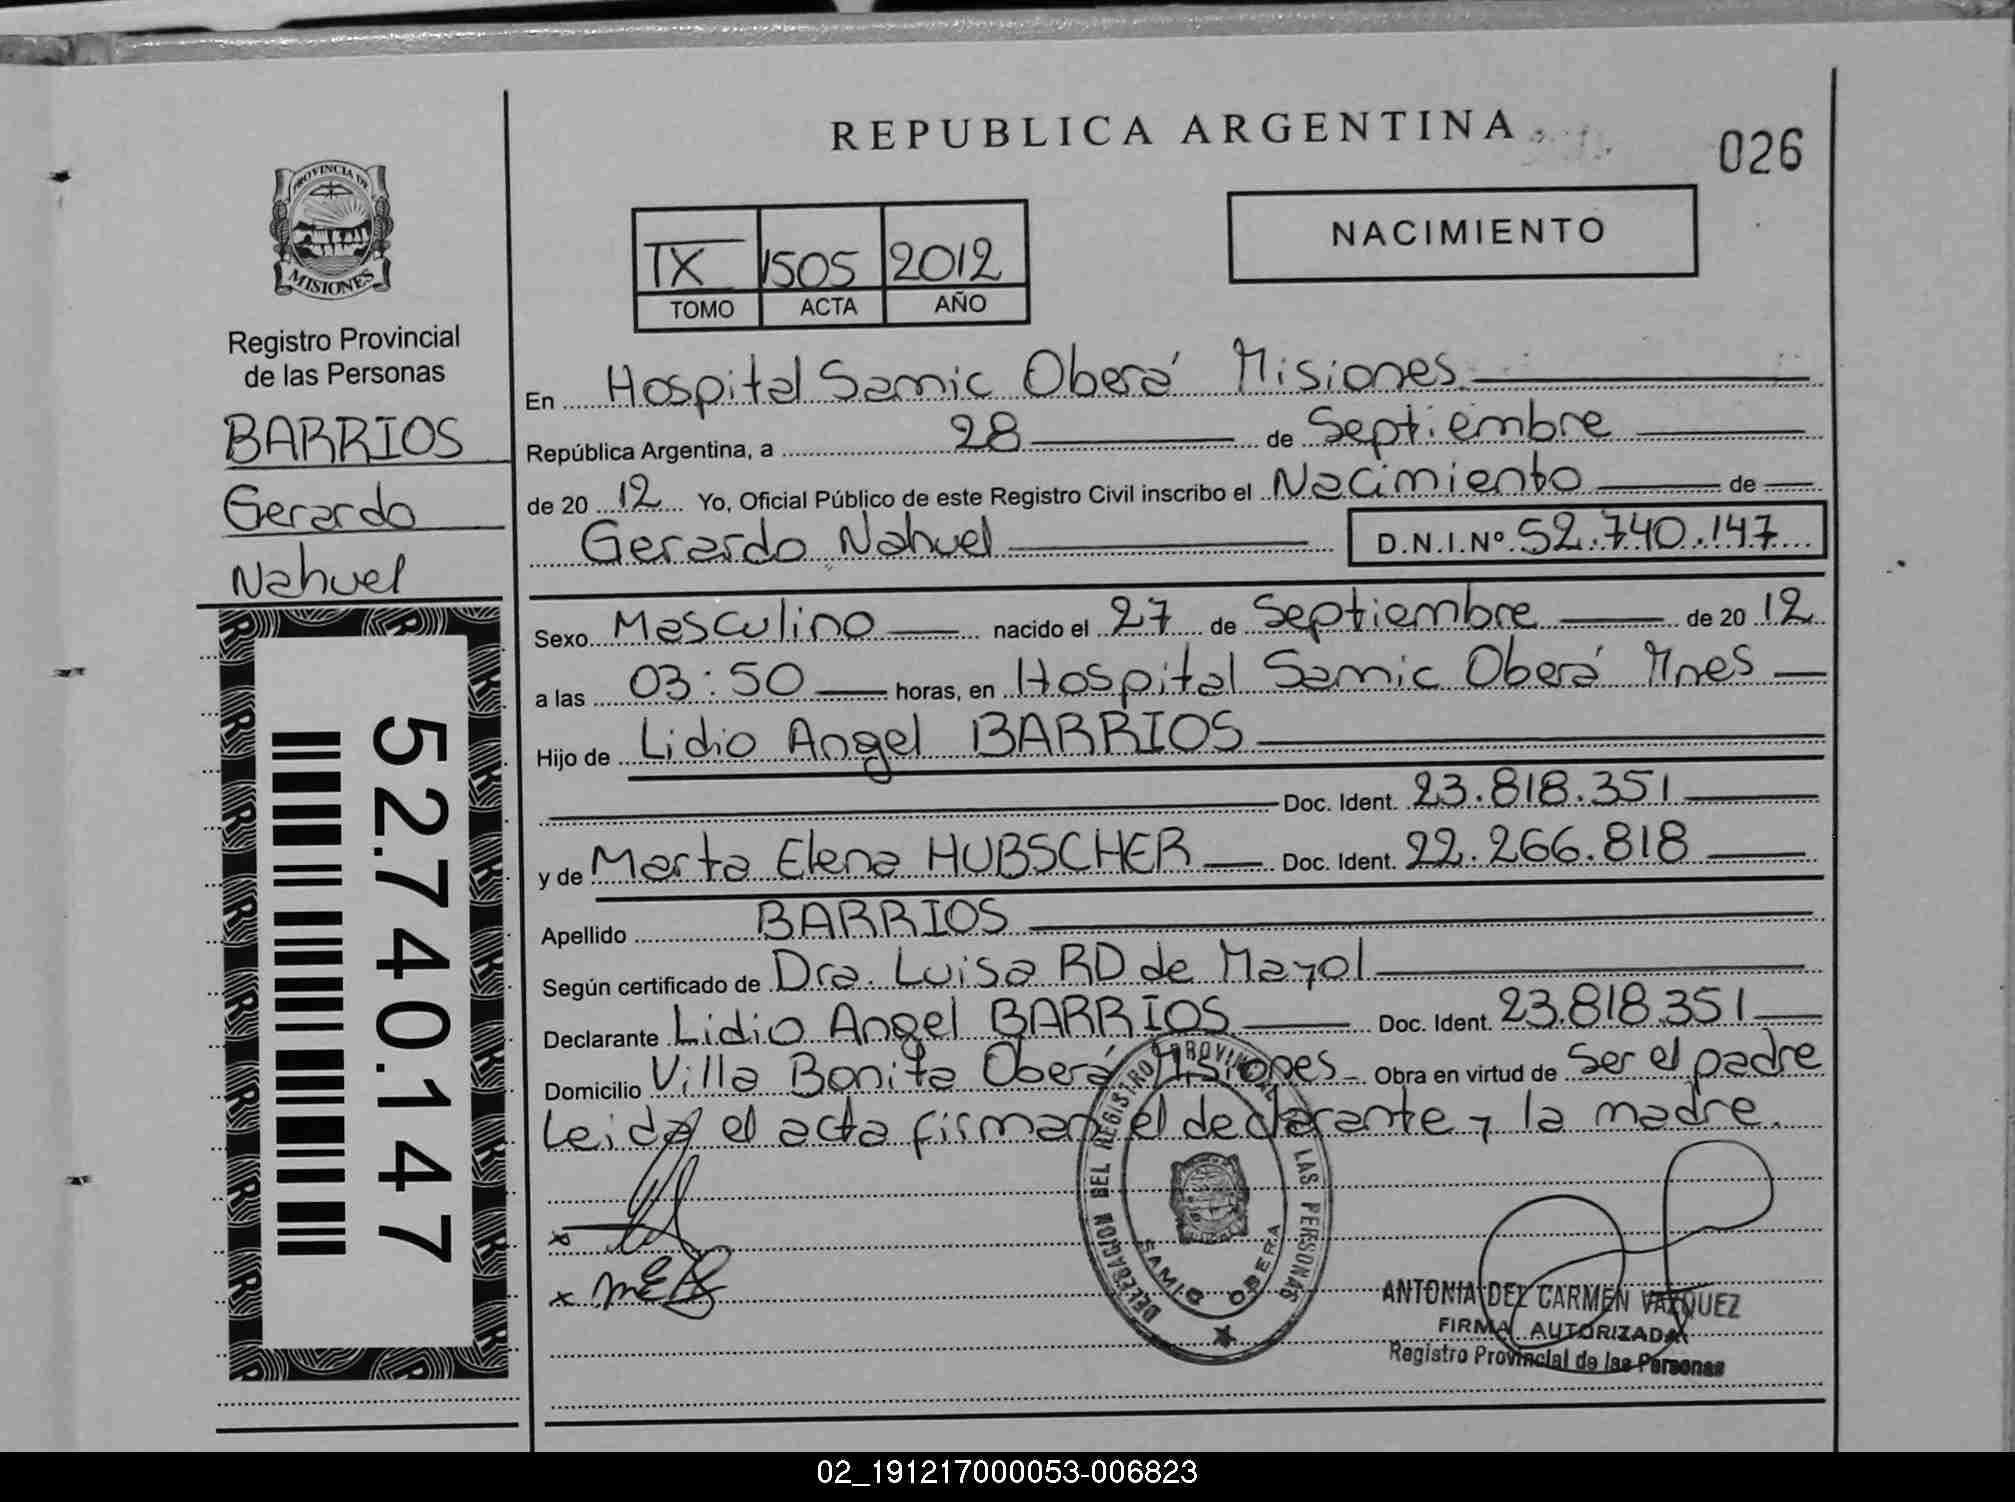 REPUBLICA ARGENTINA
026
PROVINCIA DE
MISIONES
TX 1505 2012
TOMO ACTA AÑO
NACIMIENTO
Registro Provincial
de las Personas
BARRIOS
Gerardo
Nahuel
52.740.147
En Hospital Samic Oberá Misiones
República Argentina, a 28 de Septiembre
de 20 12 Yo, Oficial Público de este Registro Civil inscribo el Nacimiento de
Gerardo Nahuel D.N.I.Nº 52.740.147
Sexo Masculino nacido el 27 de Septiembre de 20 12
a las 03:50 horas, en Hospital Samic Oberá Mnes
Hijo de Lidio Angel BARRIOS
Doc. Ident. 23.818.351
y de Marta Elena HUBSCHER Doc. Ident. 22.266.818
Apellido BARRIOS
Según certificado de Dra. Luisa RD de Mayol
Declarante Lidio Angel BARRIOS Doc. Ident. 23.818.351
Domicilio Villa Bonita Oberá Misiones Obra en virtud de Ser el padre
Leida el acta firman el declarante y la madre.
DELEGACION DEL REGISTRO PROVINCIAL LAS PERSONAS
SAMIC OBERA
ANTONIA DEL CARMEN VAZQUEZ
FIRMA AUTORIZADA
Registro Provincial de las Personas
02_191217000053-006823